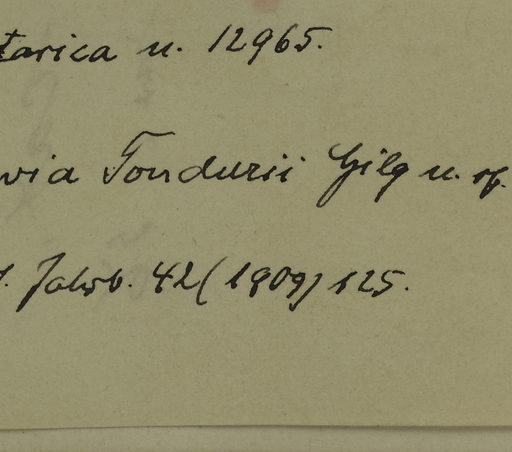 tarica n. 12965.
via Tondurii Gilg n. sp.
t. Jahrb. 42 (1909) 125.